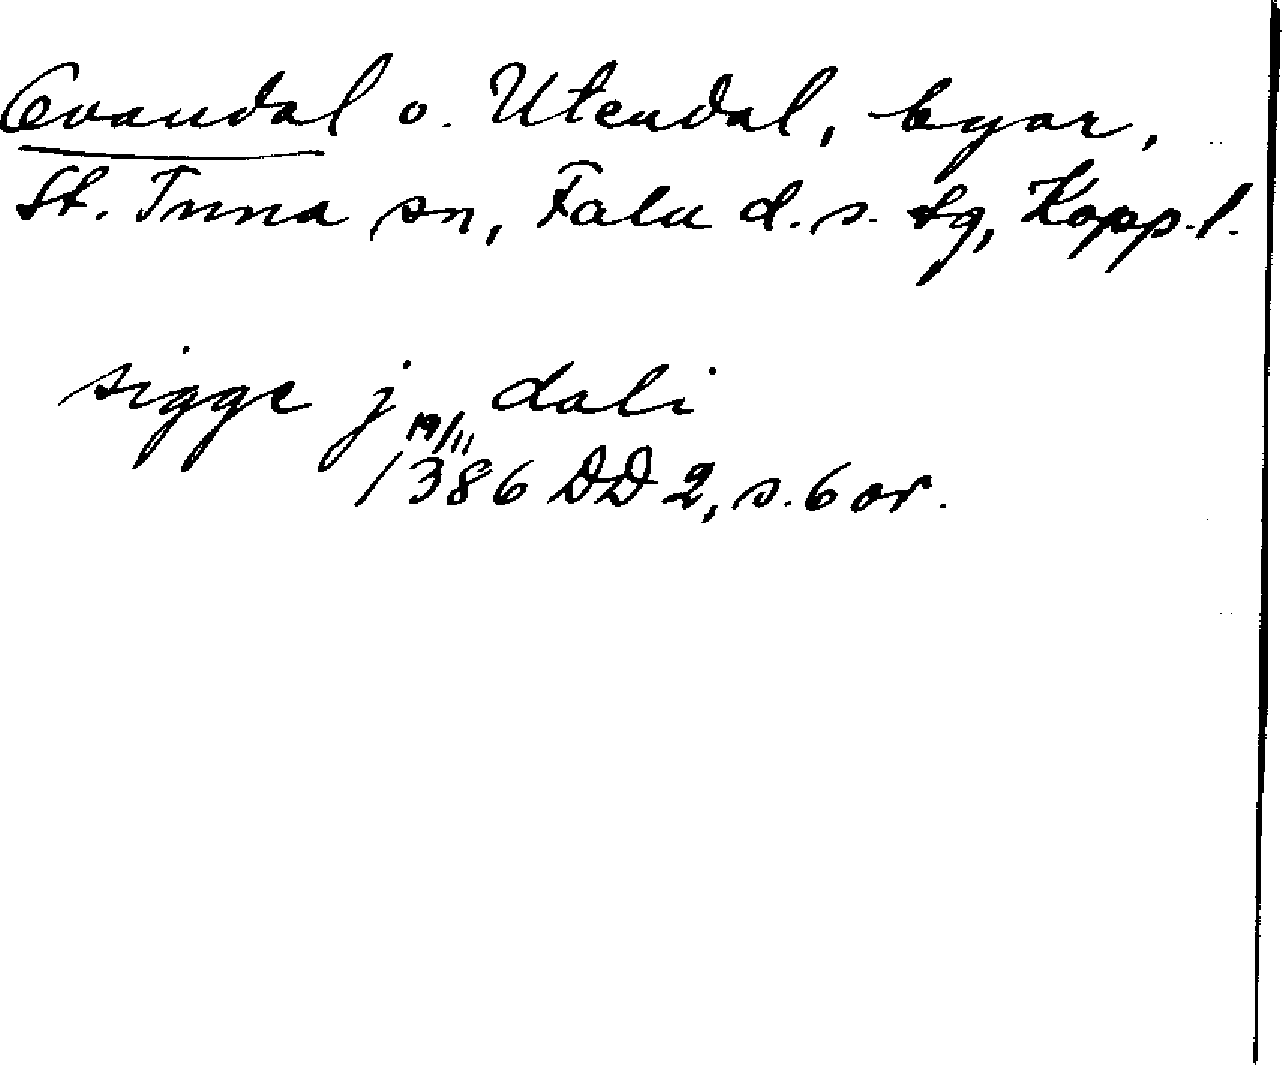 Ovandal o. Utendal, byar,
St. Tuna sn, Falu d. s. tg, Kopp. l.
sigge j dali
19/11
1386 DD 2, s. 6 or.